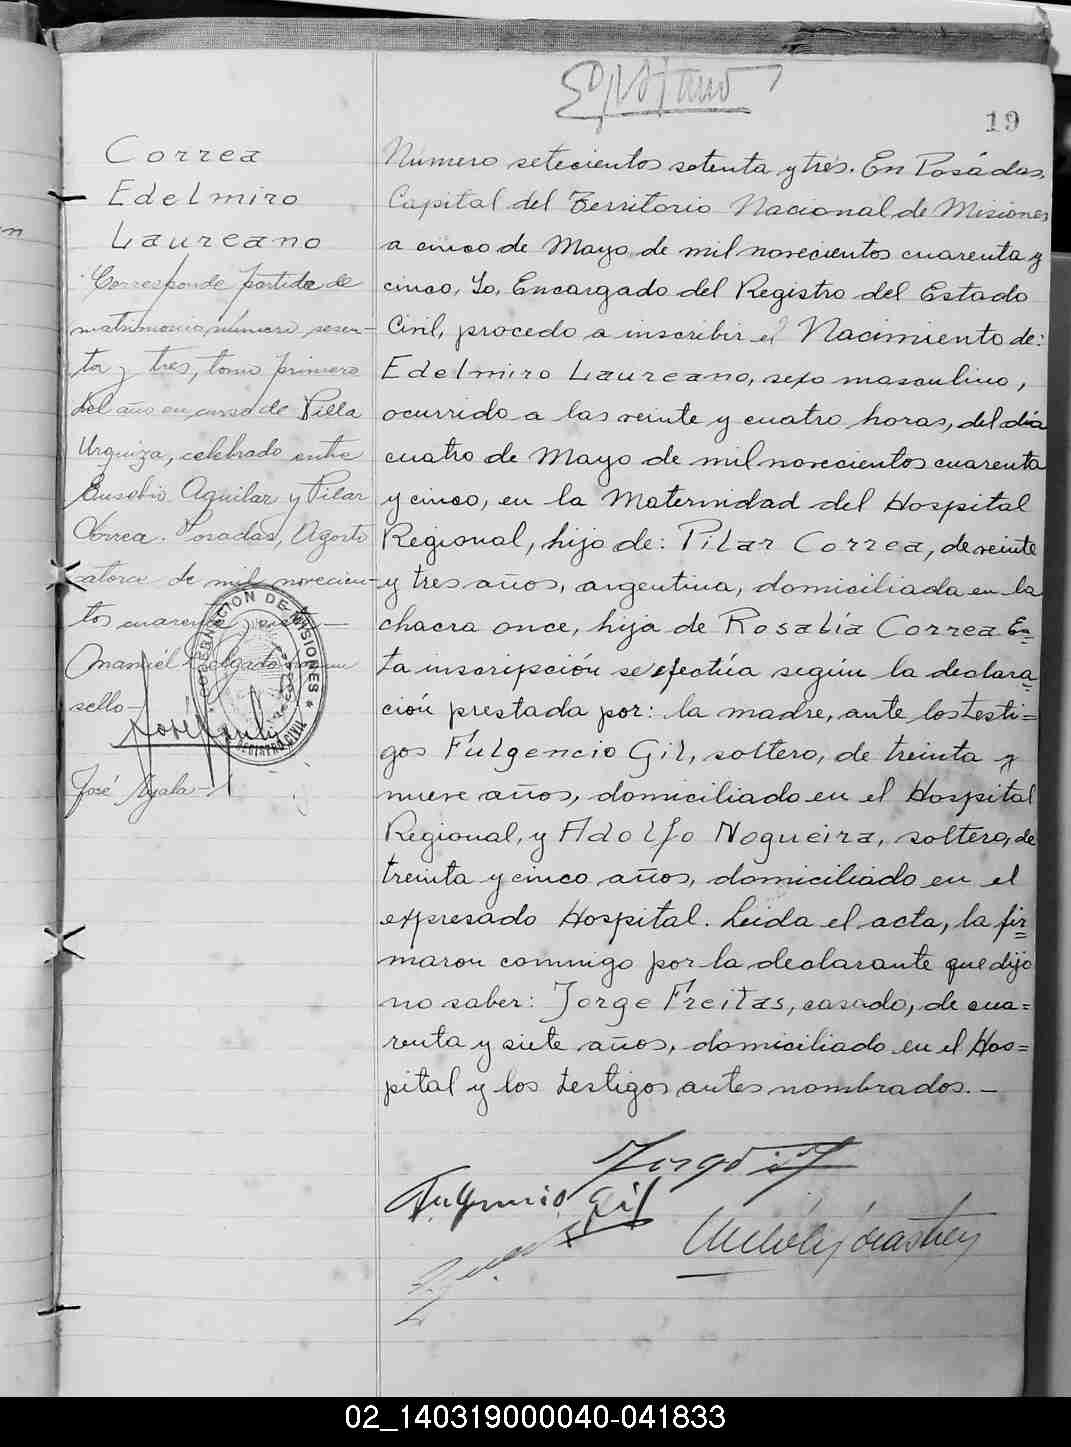 19
Correa
Edelmiro
Laureano
Corresponde partida de
matrimonio número sesen-
ta y tres, tomo primero
del año en curso de Villa
Urquiza, celebrado entre
Eusebio Aguilar y Pilar
Correa. Posadas, Agosto
catorce de mil novecien-
tos cuarenta y
Delgado
sello-
José Ayala-
GOBERNACION DE MISIONES
REGISTRO CIVIL
Número setecientos setenta y tres. En Posadas,
Capital del Territorio Nacional de Misiones
a cinco de Mayo de mil novecientos cuarenta y
cinco, Yo, Encargado del Registro del Estado
Civil, procedo a inscribir el Nacimiento de:
Edelmiro Laureano, sexo masculino,
ocurrido a las veinte y cuatro horas, del día
cuatro de Mayo de mil novecientos cuarenta
y cinco, en la Maternidad del Hospital
Regional, hijo de: Pilar Correa, de veinte
y tres años, argentina, domiciliada en la
chacra once, hija de Rosalía Correa Es=
ta inscripción se efectúa según la declara=
ción prestada por: la madre, ante los testi=
gos Fulgencio Gil, soltero, de treinta y
nueve años, domiciliado en el Hospital
Regional, y Adolfo Nogueira, soltero, de
treinta y cinco años, domiciliado en el
expresado Hospital. Leida el acta, la fir=
maron conmigo por la declarante que dijo
no saber: Jorge Freitas, casado, de cua=
renta y siete años, domiciliado en el Hos=
pital y los testigos antes nombrados.-
Fulgencio Gil
02_140319000040-041833